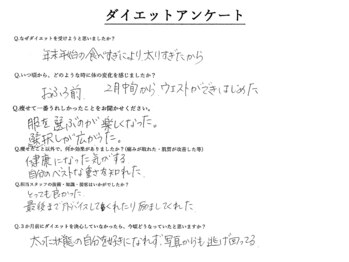 ダイエットアンケート
Q.なぜダイエットを受けようと思いましたか?
年末年始の食べすぎにより太りすぎたから
Q.いつ頃から、どのような時に体の変化を感じましたか?
おふろ前 2月中旬からウエストができはじめた
Q.痩せて一番うれしかったことをお聞かせください。
服を選ぶのが楽しくなった。
選択しが広がった。
Q.痩せたこと以外で、何か効果がありましたか?(痛みが取れた・肌質が改善した等)
健康になった気がする
自分のベストな重さを知れた
Q.担当スタッフの技術・知識・接客はいかがでしたか?
とっても良かった
最後までアドバイスしてくれたり励ましてくれた
Q.3か月前にダイエットを決心していなかったら、今頃どうなっていたと思いますか?
太った状態の自分を好きになれず、写真からも逃げ回ってる